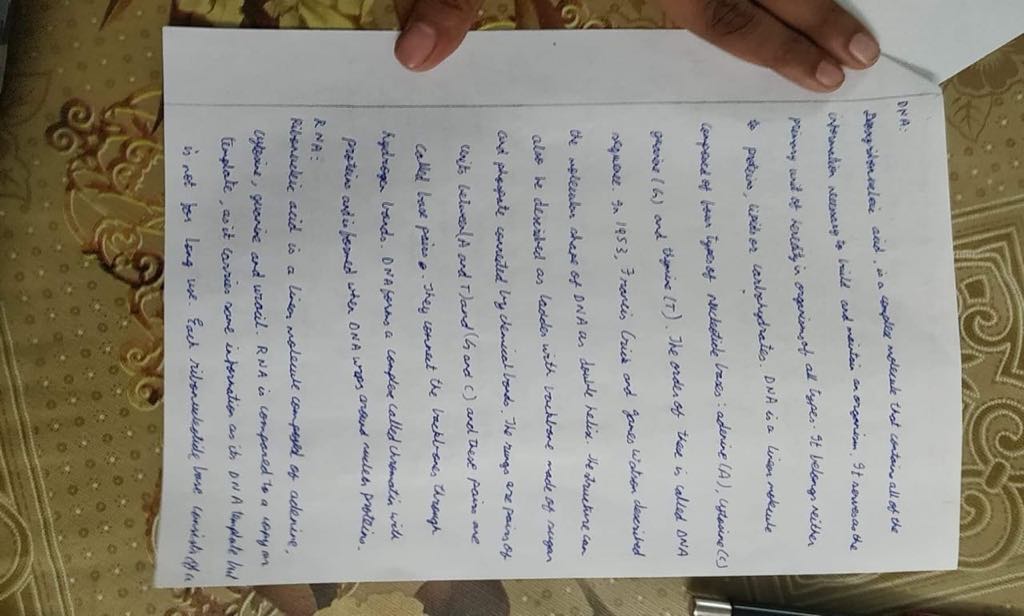 DNA:
Deoxyribonucleic acid, is a complex molecule that contains all of the
information necessary to build and maintain an organism. It serves as the
primary unit of heredity in organisms of all types. It belongs neither
to proteins, lipids or carbohydrates. DNA is a linear molecule
composed of four types of nucleotide bases: adenine (A), cytosine (C)
guanine (G) and thymine (T). The order of these is called DNA
sequence. In 1953, Francis Crick and James Watson described
the molecular shape of DNA as double helix. The structure can
also be described as ladder with backbone made of sugar
and phosphate connected by chemical bonds. The rungs are pairs of
units between (A and T) and (G and C) and these pairs are
called base pairs. They connect the backbones through
hydrogen bonds. DNA forms a complex called chromatin with
proteins and is formed when DNA wraps around nuclear proteins.
RNA:
Ribonucleic acid is a linear molecule composed of adenine,
cytosine, guanine and uracil. RNA is compared to a copy or
template, as it carries same information as its DNA template but
is not for long use. Each ribonucleotide base consists of a